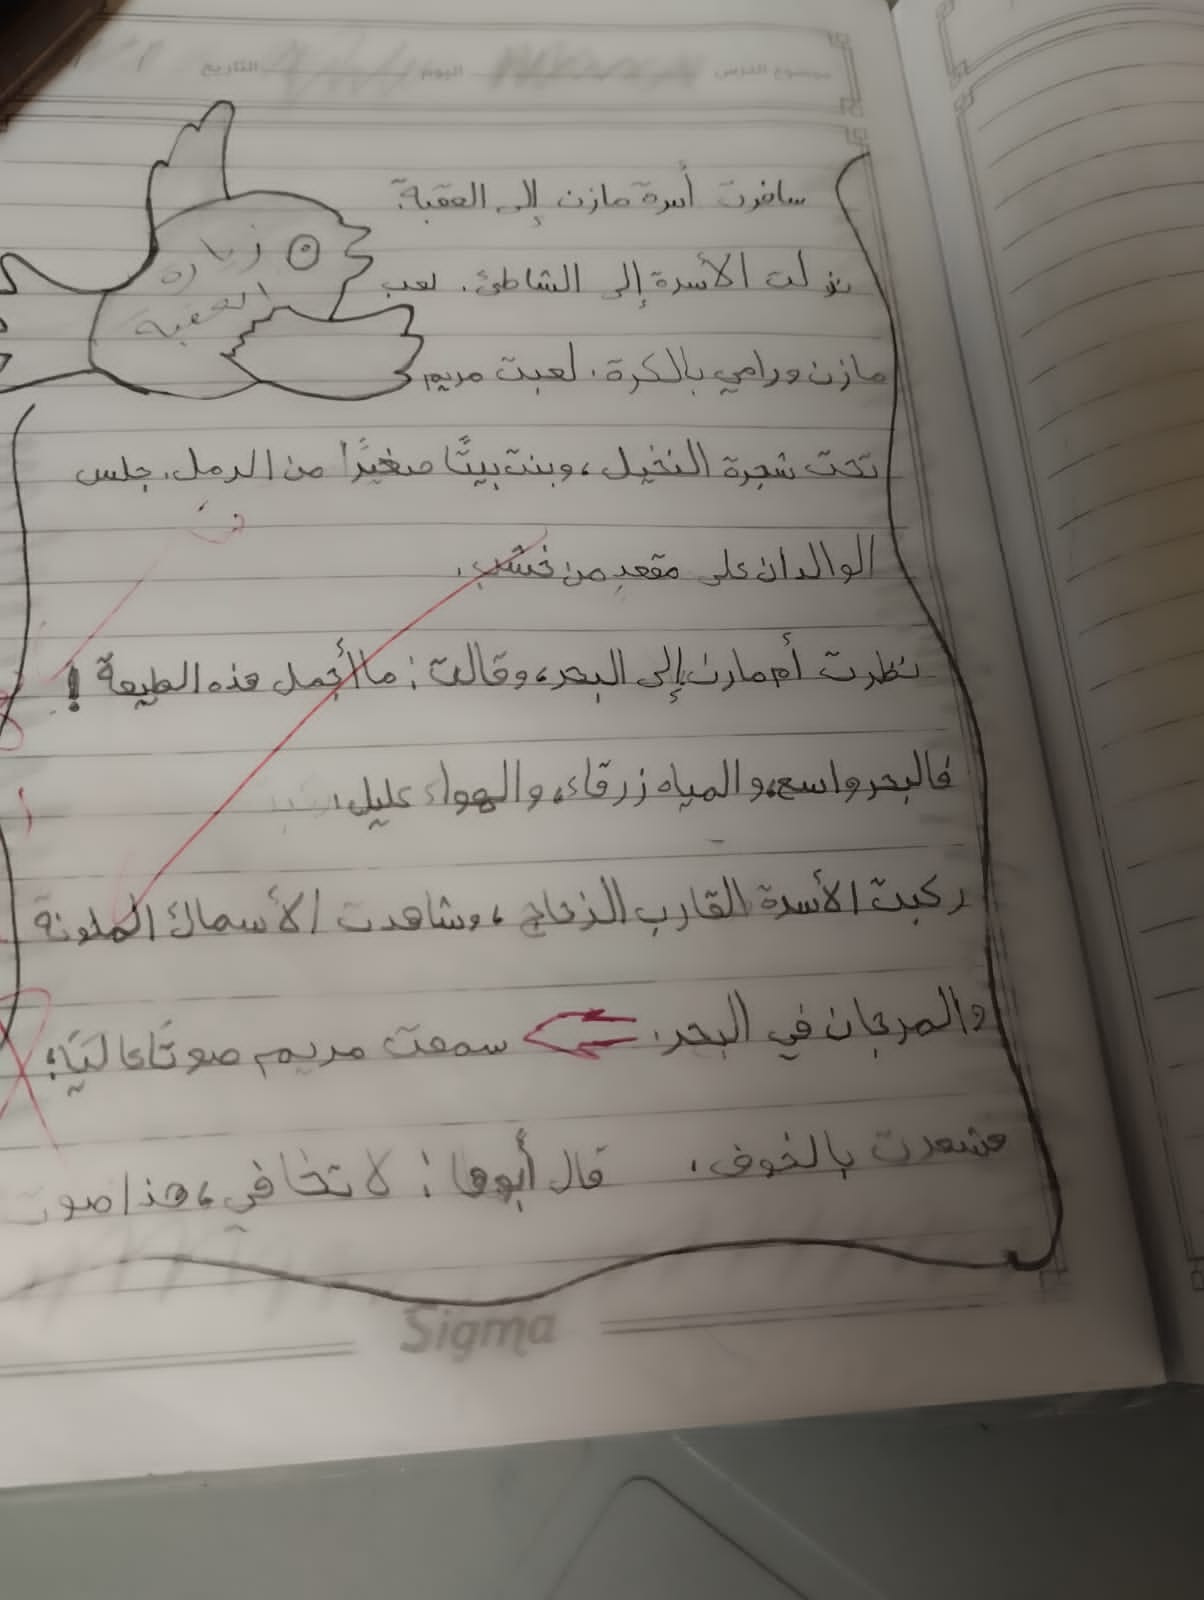 موضوع الدرس اليوم التاريخ
زيارة
العقبة
سافرت أسرة مازن إلى العقبة.
نزلت الأسرة إلى الشاطئ. لعب
مازن ورامي بالكرة. لعبت مريم
تحت شجرة النخيل، وبنت بيتًا صغيرًا من الرمل. جلس
الوالدان على مقعدٍ من خشب.
نظرت أم مازن إلى البحر، وقالت: ما أجمل هذه الطبيعة!
فالبحر واسع، والمياه زرقاء، والهواء عليل.
ركبت الأسرة القارب الزجاج، وشاهدت الأسماك الملونة
والمرجان في البحر. سمعت مريم صوتًا عاليًا؛
فشعرت بالخوف. قال أبوها: لا تخافي، هذا صوت
Sigma